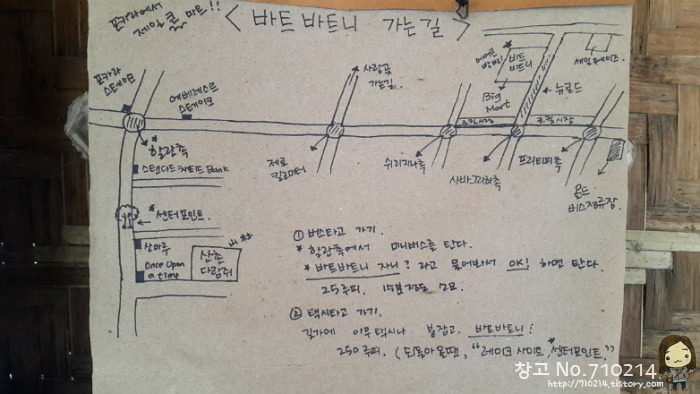 포카라에서
제일 큰 마트!!
< 바트 바트니 가는길 >
포카라
스테이크
에베레스트
스테이크
사랑곳
가는길.
바트
바트니
Big
Mart
뉴로드
세일 웨이즈.
* 할란촉
스탠다드 차타드 Bank
제로
킬로미터
쉬리지나촉
사바그리하촉
프리티비촉
올드
버스정류장.
* 센터포인트.
산마루
Once Upon
a time
산촌
다람쥐
① 버스타고 가기.
* 할란촉에서 미니버스를 탄다.
* 바트바트니 자니? 라고 물어봐서 OK! 하면 탄다.
25루피. 15분정도 소요.
② 택시타고 가기.
길가에 아무 택시나 붙잡고. 바트바트니!
250루피. (되돌아올땐, "레이크 사이드, 센터포인트."
창고 No.710214
http://710214.tistory.com